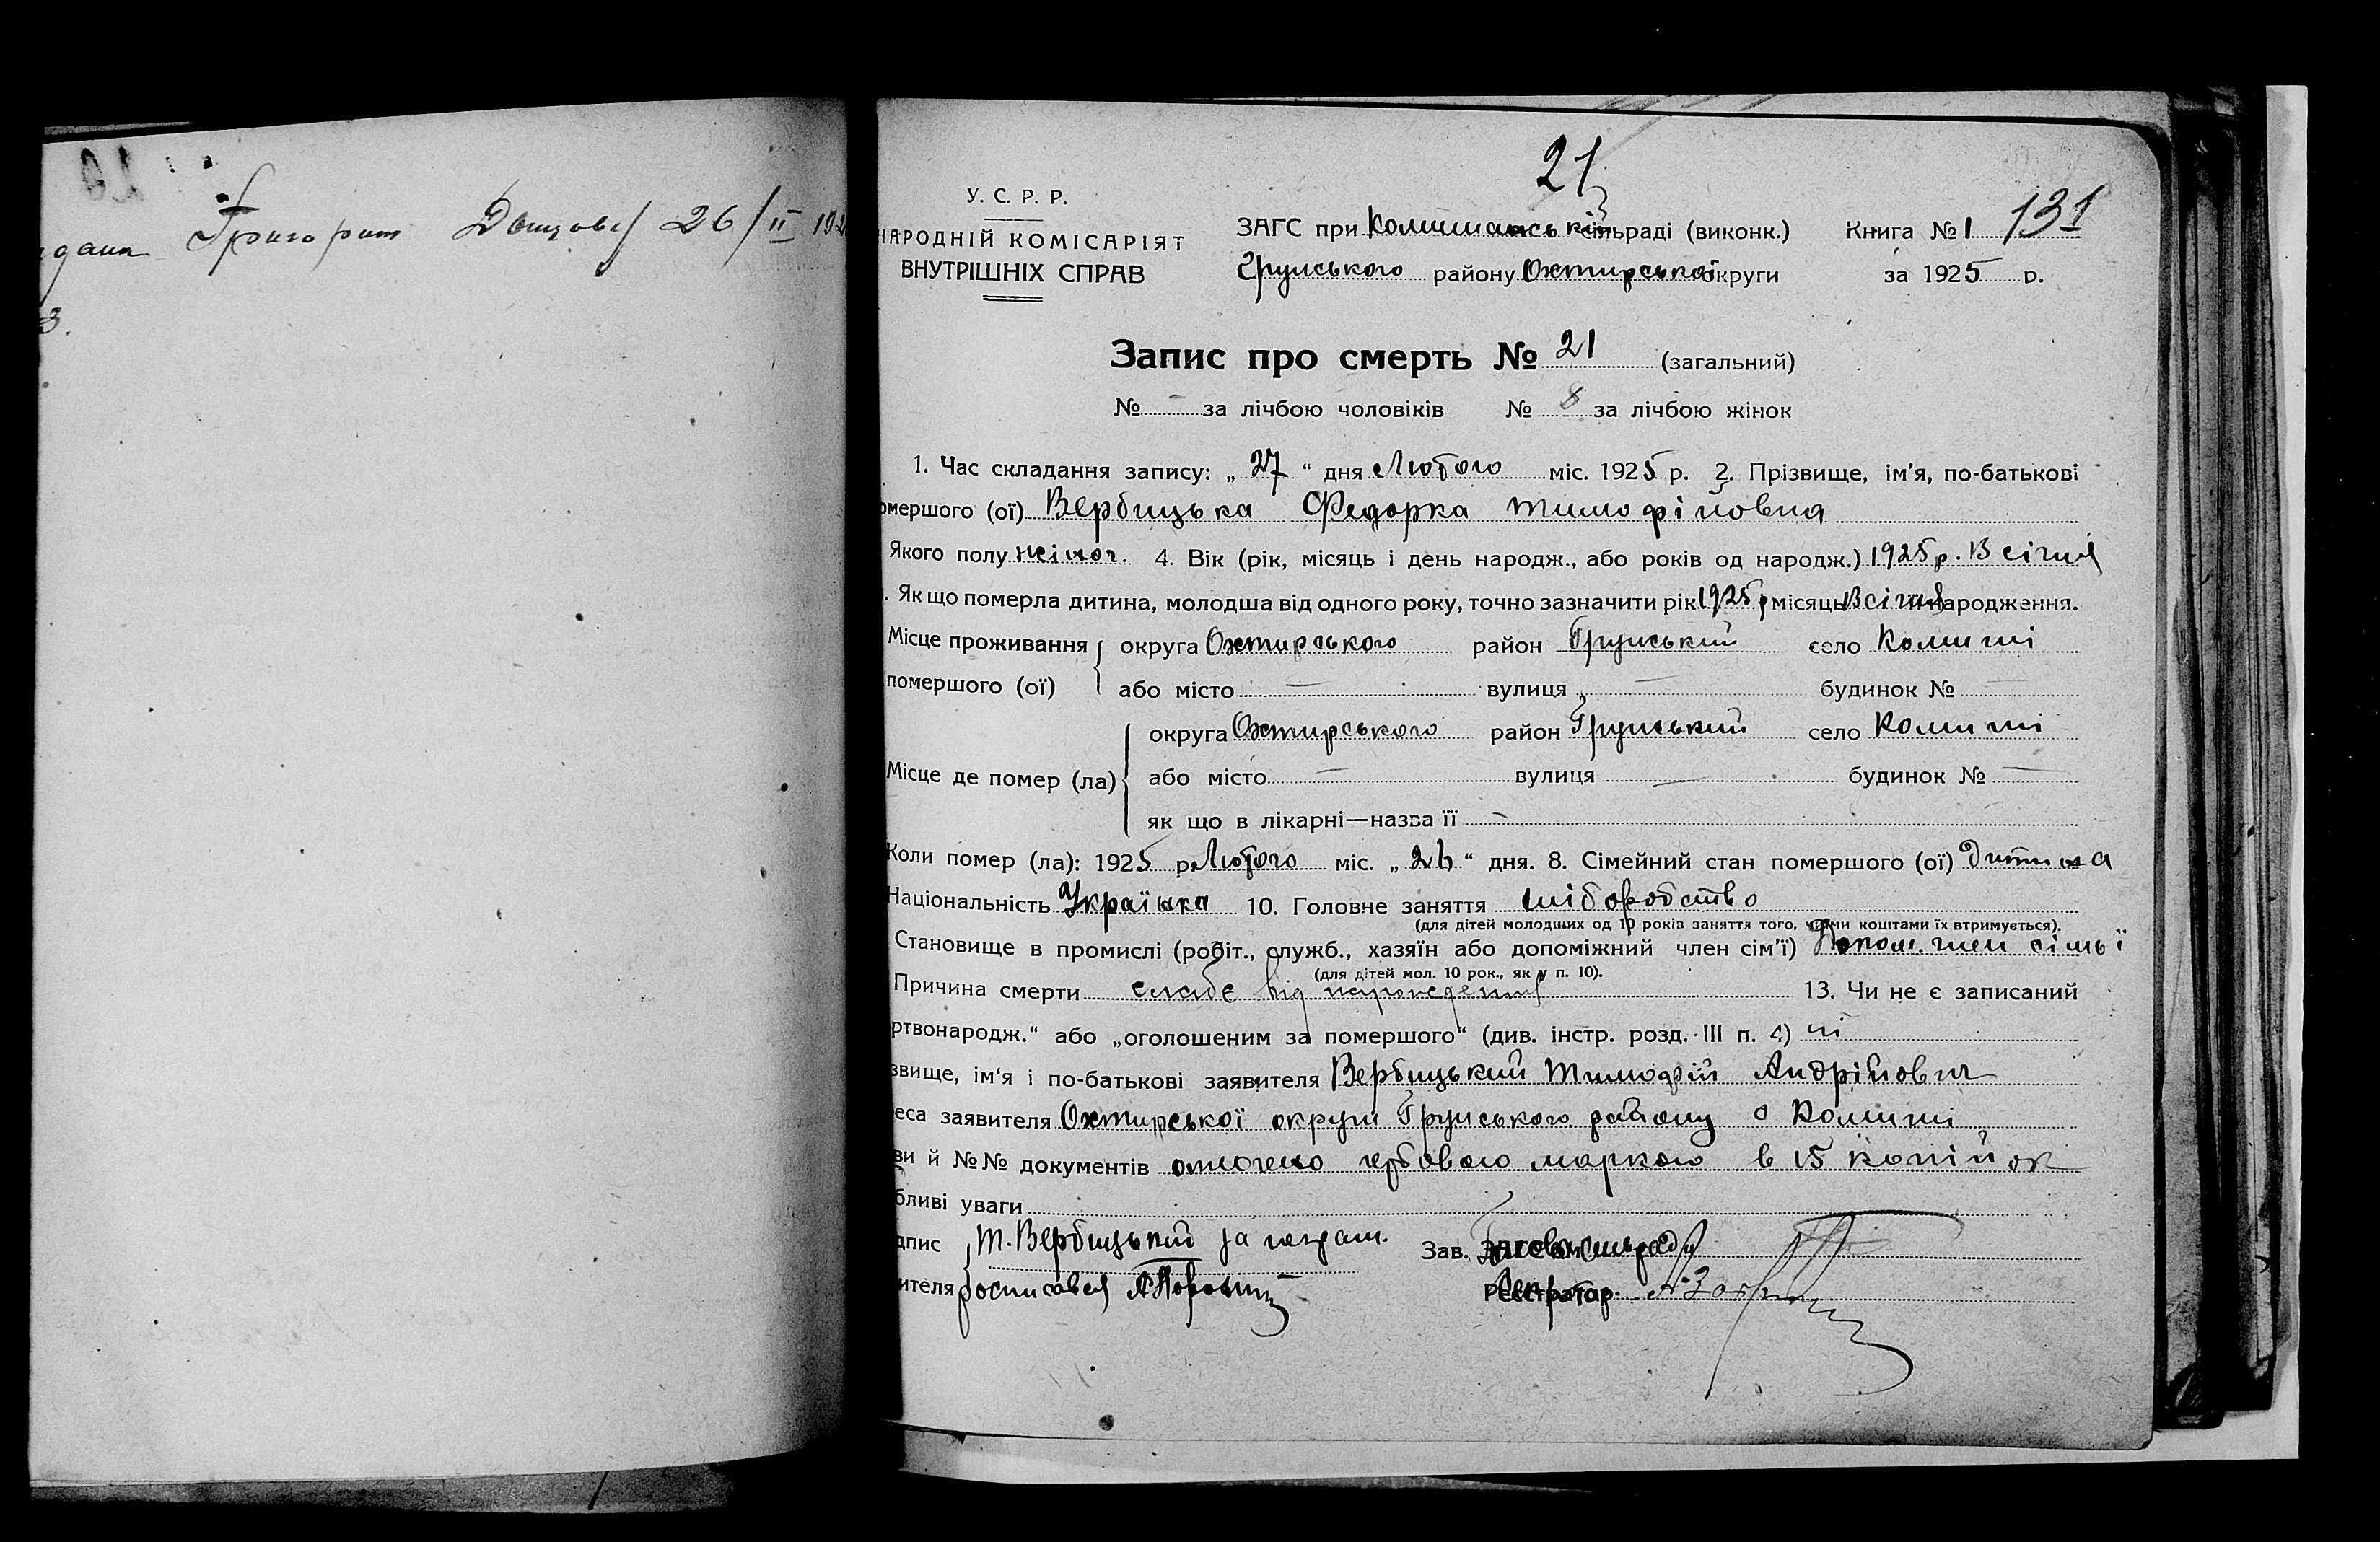 Григорит 26/II 192
3.
21
131
У. С. Р. Р.
НАРОДНІЙ КОМІСАРІЯТ
ВНУТРІШНІХ СПРАВ
ЗАГС при Комишанській сільраді (виконк.) Книга № 1
Грунського району Охтирської округи за 1925 р.
Запис про смерть № 21 (загальний)
№ - за лічбою чоловіків № 8 за лічбою жінок
1. Час складання запису: „ 27 “ дня Лютого міс. 1925 р. 2. Прізвище, ім’я, по-батькові
омершого (ої) Вербицька Федорка Тимофійовна
Якого полу жіноч. 4. Вік (рік, місяць і день народж., або років од народж.) 1925 р. 13 січня
. Як що померла дитина, молодша від одного року, точно зазначити рік 1925 р місяць 13 січня народження.
Місце проживання округа Охтирського район Грунський село Комиші
помершого (ої) або місто — вулиця — будинок № —
округа Охтирського район Грунський село Комиші
Місце де помер (ла) або місто — вулиця — будинок № —
як що в лікарні—назва її -
Коли помер (ла): 1925 р Лютого міс. „ 26 “ дня. 8. Сімейний стан помершого (ої) дитина
Національність Українка 10. Головне заняття хліборобство
(для дітей молодших од 10 років заняття того, чиїми коштами їх втримується).
Становище в промислі (робіт., служб., хазяїн або допоміжний член сім’ї) Допом. член сімьї
(для дітей мол. 10 рок., як у п. 10).
Причина смерти слабе від народження 13. Чи не є записаний
ртвонародж.“ або „оголошеним за помершого“ (див. інстр. розд. III п. 4) ні
звище, ім‘я і по-батькові заявителя Вербицький Тимофій Андрійович
еса заявителя Охтирської округи Грунського району с Комиші
ви й №№ документів оплочено гербовою маркою в 15 копійок
бливі уваги
дпис Т. Вербицький за неграм. Зав. ЗАГС'ом
ителя росписався Реєстратор